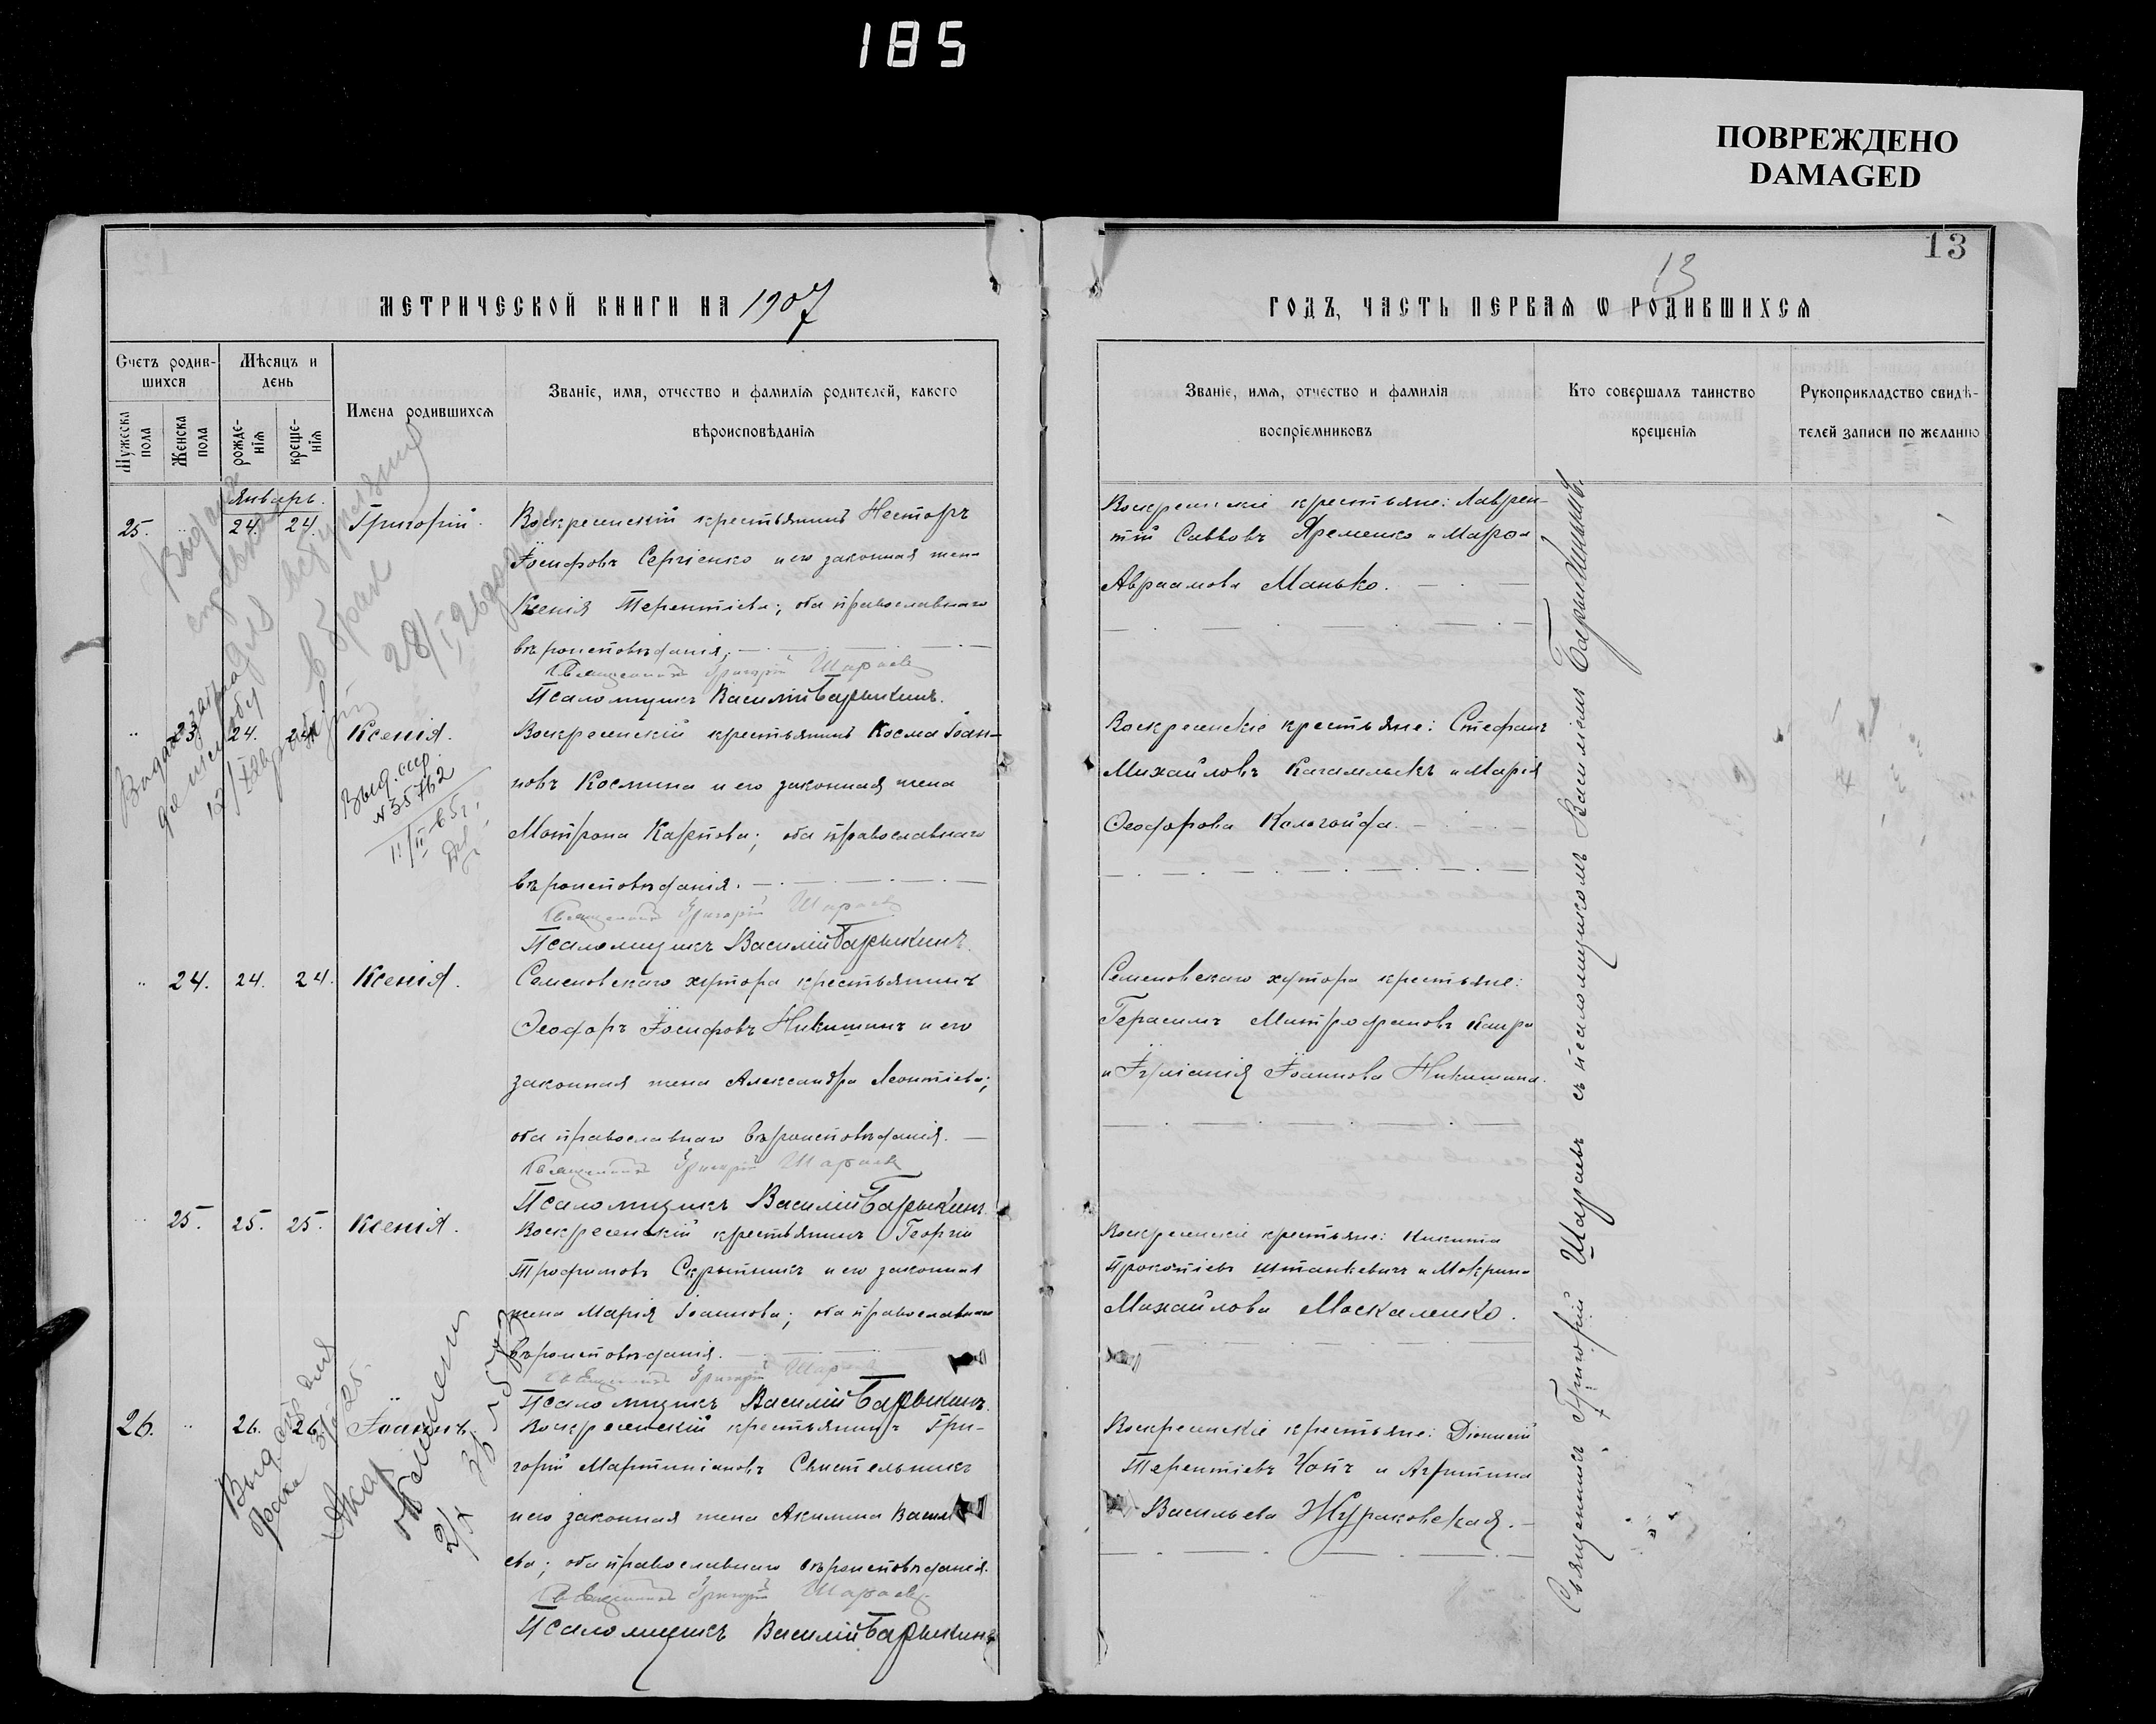 185
ПОВРЕЖДЕНО
DAMAGED
13
13
МЕТРИЧЕСКОЙ КНИГИ НА 1907
ГОДЪ, ЧАСТЬ ПЕРВАЯ Ѡ РОДИВШИХСЯ
Счетъ родив-
шихся
Мужеска
пола
Женска
пола
Мѣсяцъ и
день
рожде-
нія
креще-
нія
Имена родившихся
Званіе, имя, отчество и фамилія родителей, какого
вѣроисповѣданія
Званіе, имя, отчество и фамилія
воспріемниковъ
Кто совершалъ таинство
крещенія
Рукоприкладство свидѣ-
телей записи по желанію
Январь.
25. 24. 24. Григорій.
Воскресенскій крестьянинъ Несторъ
Іосифовъ Сергіенко и его законная жена
Ксенія Терентіева; оба православнаго
вѣроисповѣданія.
Священникъ Григорій Шараевъ
Псаломщикъ Василій Барыкинъ.
Воскресенскіе крестьяне: Лаврен-
тій Савовъ Яременко и Марѳа
Авраамова Манько.
23. 24. 24. Ксенія.
Выд. спр
№35762
11/II-65г.
Воскресенскій крестьянинъ Косма Іоан-
новъ Космина и его законная жена
Матрона Карпова; оба православнаго
вѣроисповѣданія.
Священникъ Григорій Шараевъ
Псаломщикъ Василій Барыкинъ.
Воскресенскіе крестьяне: Стефанъ
Михайловъ и Марія
Ѳеодорова
24. 24. 24. Ксенія.
Семеновскаго хутора крестьянинъ
Ѳеодоръ Іосифовъ Никишинъ и его
законная жена Александра Леонтіева;
оба православнаго вѣроисповѣданія.
Священникъ Григорій Шараевъ
Псаломщикъ Василій Барыкинъ.
Семеновскаго хутора крестьяне:
Герасимъ Митрофановъ
и Іуліанія Іоаннова Никишина.
25. 25. 25. Ксенія.
Воскресенскій крестьянинъ Георгій
Трофимовъ Скрыпникъ и его законная
жена Марія Іоаннова; оба православнаго
вѣроисповѣданія.
Священникъ Григорій Шараевъ
Псаломщикъ Василій Барыкинъ.
Воскресенскіе крестьяне: Никита
Прокопіевъ Штанкевичъ и Макрина
Михайлова Москаленко.
26. 26. 26. Іоаннъ.
Воскресенскій крестьянинъ Гри-
горій Мартиніановъ Свистельникъ
и его законная жена Акилина Василь
ева; оба православнаго вѣроисповѣданія.
Священникъ Григорій Шараевъ
Псаломщикъ Василій Барыкинъ
Воскресенскіе крестьяне: Діонисій
Терентіевъ Чопъ и Агрипина
Васильева Жураковская.
Священникъ Григорій Шараевъ съ псаломщикомъ Василіемъ Барыкинымъ.